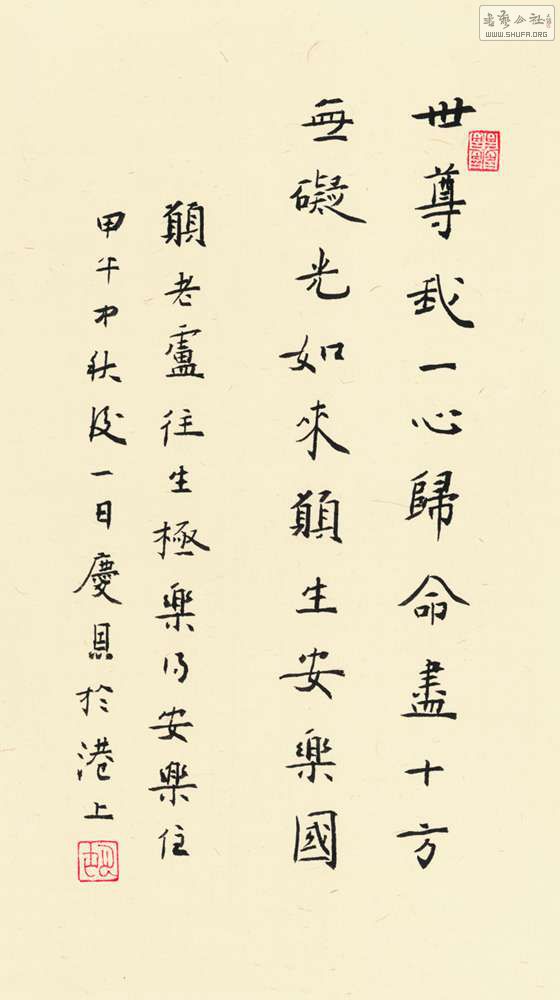 世尊我一心歸命盡十方
無礙光如來願生安樂國
願老盧往生極樂得安樂住
甲午中秋後一日慶恩於港上
書藝公社
WWW.SHUFA.ORG